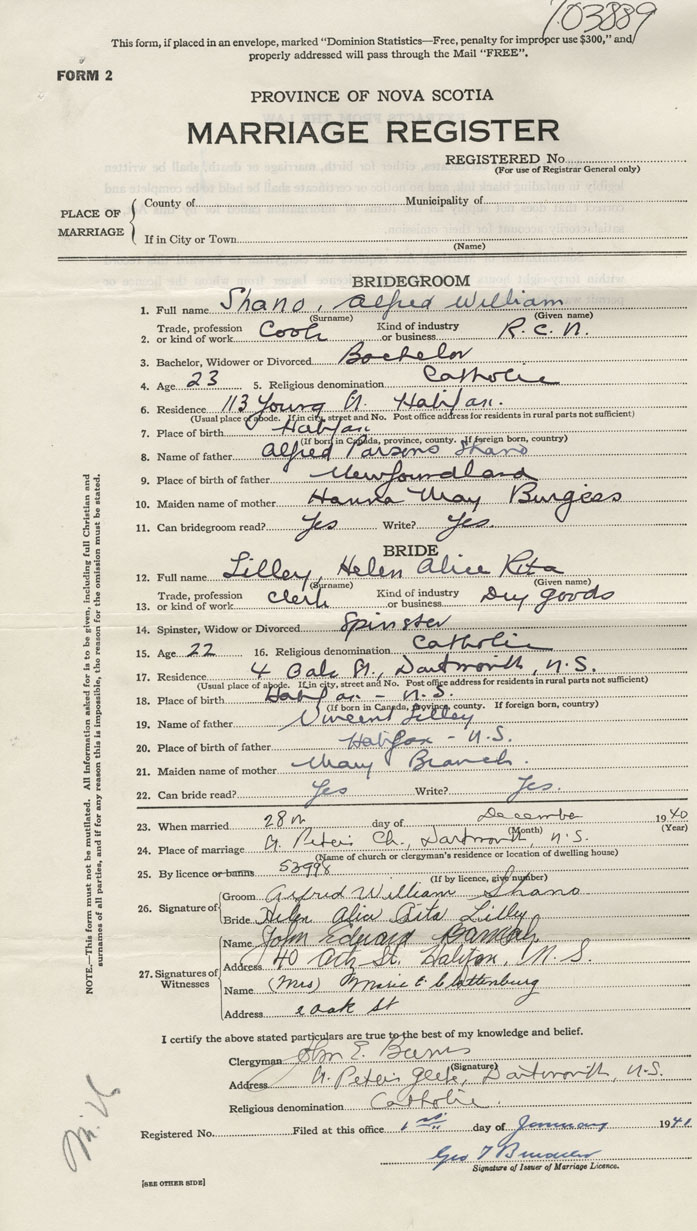 703889
This form, if placed in an envelope, marked "Dominion Statistics—Free, penalty for improper use $300," and
properly addressed will pass through the Mail "FREE".
FORM 2
PROVINCE OF NOVA SCOTIA
MARRIAGE REGISTER
REGISTERED No.
(For use of Registrar General only)
PLACE OF MARRIAGE
County of Municipality of
If in City or Town
(Name)
BRIDEGROOM
1. Full name Shano, Alfred William
(Surname) (Given name)
2. Trade, profession or kind of work Cook Kind of industry or business R.C.N.
3. Bachelor, Widower or Divorced Bachelor
4. Age 23 5. Religious denomination Catholic
6. Residence 113 Young St. Halifax.
(Usual place of abode. If in city, street and No. Post office address for residents in rural parts not sufficient)
7. Place of birth Halifax
(If born in Canada, province, county. If foreign born, country)
8. Name of father Alfred Parsons Shano
9. Place of birth of father Newfoundland
10. Maiden name of mother Hanna May Burgess
11. Can bridegroom read? Yes Write? Yes.
BRIDE
12. Full name Lilley, Helen Alice Rita
(Surname) (Given name)
13. Trade, profession or kind of work Clerk Kind of industry or business Dry goods
14. Spinster, Widow or Divorced Spinster
15. Age 22 16. Religious denomination Catholic
17. Residence 4 St., Dartmouth, N.S.
(Usual place of abode. If in city, street and No. Post office address for residents in rural parts not sufficient)
18. Place of birth Halifax - N.S.
(If born in Canada, province, county. If foreign born, country)
19. Name of father Vincent Lilley
20. Place of birth of father Halifax - N.S.
21. Maiden name of mother Mary Branch.
22. Can bride read? Yes Write? Yes.
23. When married 28th day of December 1940
(Month) (Year)
24. Place of marriage St. Peter's Ch., Dartmouth, N.S.
(Name of church or clergyman's residence or location of dwelling house)
25. By licence or banns 53998
(If by licence, give number)
26. Signature of
Groom Alfred William Shano
Bride Helen Alice Rita Lilley
27. Signatures of Witnesses
Name John Edward
Address 40 St. Halifax, N.S.
Name (Mrs) Marie E. Clattenburg
Address Oak St
I certify the above stated particulars are true to the best of my knowledge and belief.
Clergyman John E. Burns
(Signature)
Address St. Peter's Glebe, Dartmouth, N.S.
Religious denomination Catholic.
Registered No. Filed at this office 1st day of January 1941
Geo T
Signature of Issuer of Marriage Licence.
[SEE OTHER SIDE]
NOTE.—This form must not be mutilated. All information asked for is to be given, including full Christian and
surnames of all parties, and if for any reason this is impossible, the reason for the omission must be stated.